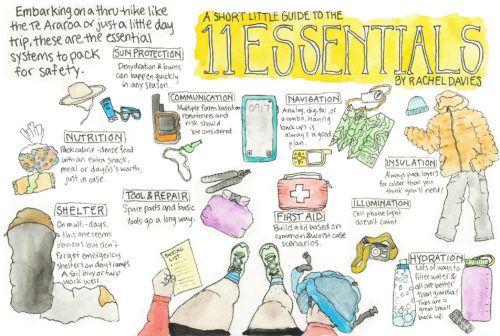 Embarking on a thru-hike like
the Te Araroa or just a little day
trip, these are the essential
systems to pack
for safety.
A SHORT LITTLE GUIDE TO THE
11 ESSENTIALS
BY RACHEL DAVIES
SUN PROTECTION
Dehydration & burns
can happen quickly
in any season.
COMMUNICATION
Multiple forms based on
remoteness and
risk should
be considered
0917
NAVIGATION
Analog, digital, or
a combo, having
back ups is
always a good
plan.
NUTRITION
Pack calorie-dense food
with an extra snack,
meal or day(s)'s worth,
just in case.
INSULATION
Always pack layers
for colder than you
think you'll need!
TOOL & REPAIR
Spare parts and basic
tools go a long way.
FIRST AID
Build a kit based on
common & worst case
scenarios.
ILLUMINATION
Cell phone light
doesn't count.
SHELTER
On multi-days,
this one seems
obvious, but don't
forget emergency
shelters on day tramps.
A foil bivy or tarp
work well.
PACKING
LIST
HYDRATION
Lots of ways to
filter water &
all are better
than giardia!
Tabs are a
great small
back up.